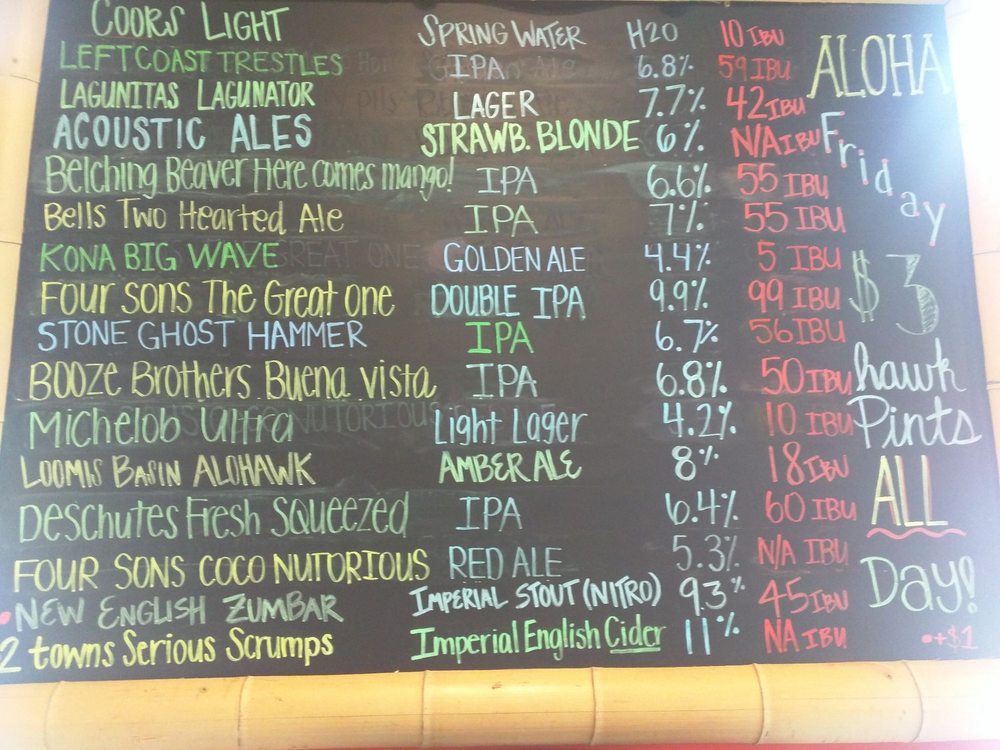 COORS LIGHT SPRING WATER H2O 10 IBU
LEFT COAST TRESTLES IPA 6.8% 59 IBU
LAGUNITAS LAGUNATOR LAGER 7.7% 42 IBU
ACOUSTIC ALES STRAWB. BLONDE 6% N/A IBU
Belching Beaver Here comes mango! IPA 6.6% 55 IBU
Bells Two Hearted Ale IPA 7% 55 IBU
KONA BIG WAVE GOLDEN ALE 4.4% 5 IBU
Four Sons The Great One DOUBLE IPA 9.9% 99 IBU
STONE GHOST HAMMER IPA 6.7% 56 IBU
Booze Brothers Buena Vista IPA 6.8% 50 IBU
Michelob Ultra Light Lager 4.2% 10 IBU
LOOMIS BASIN ALOHAWK AMBER ALE 8% 18 IBU
Deschutes Fresh Squeezed IPA 6.4% 60 IBU
FOUR SONS COCO NUTORIOUS RED ALE 5.3% N/A IBU
•NEW ENGLISH ZUMBAR IMPERIAL STOUT (NITRO) 9.3% 45 IBU
2 towns Serious Scrumps Imperial English Cider 11% NA IBU
ALOHA
Friday
$3
hawk
Pints
ALL
Day!
•+$1